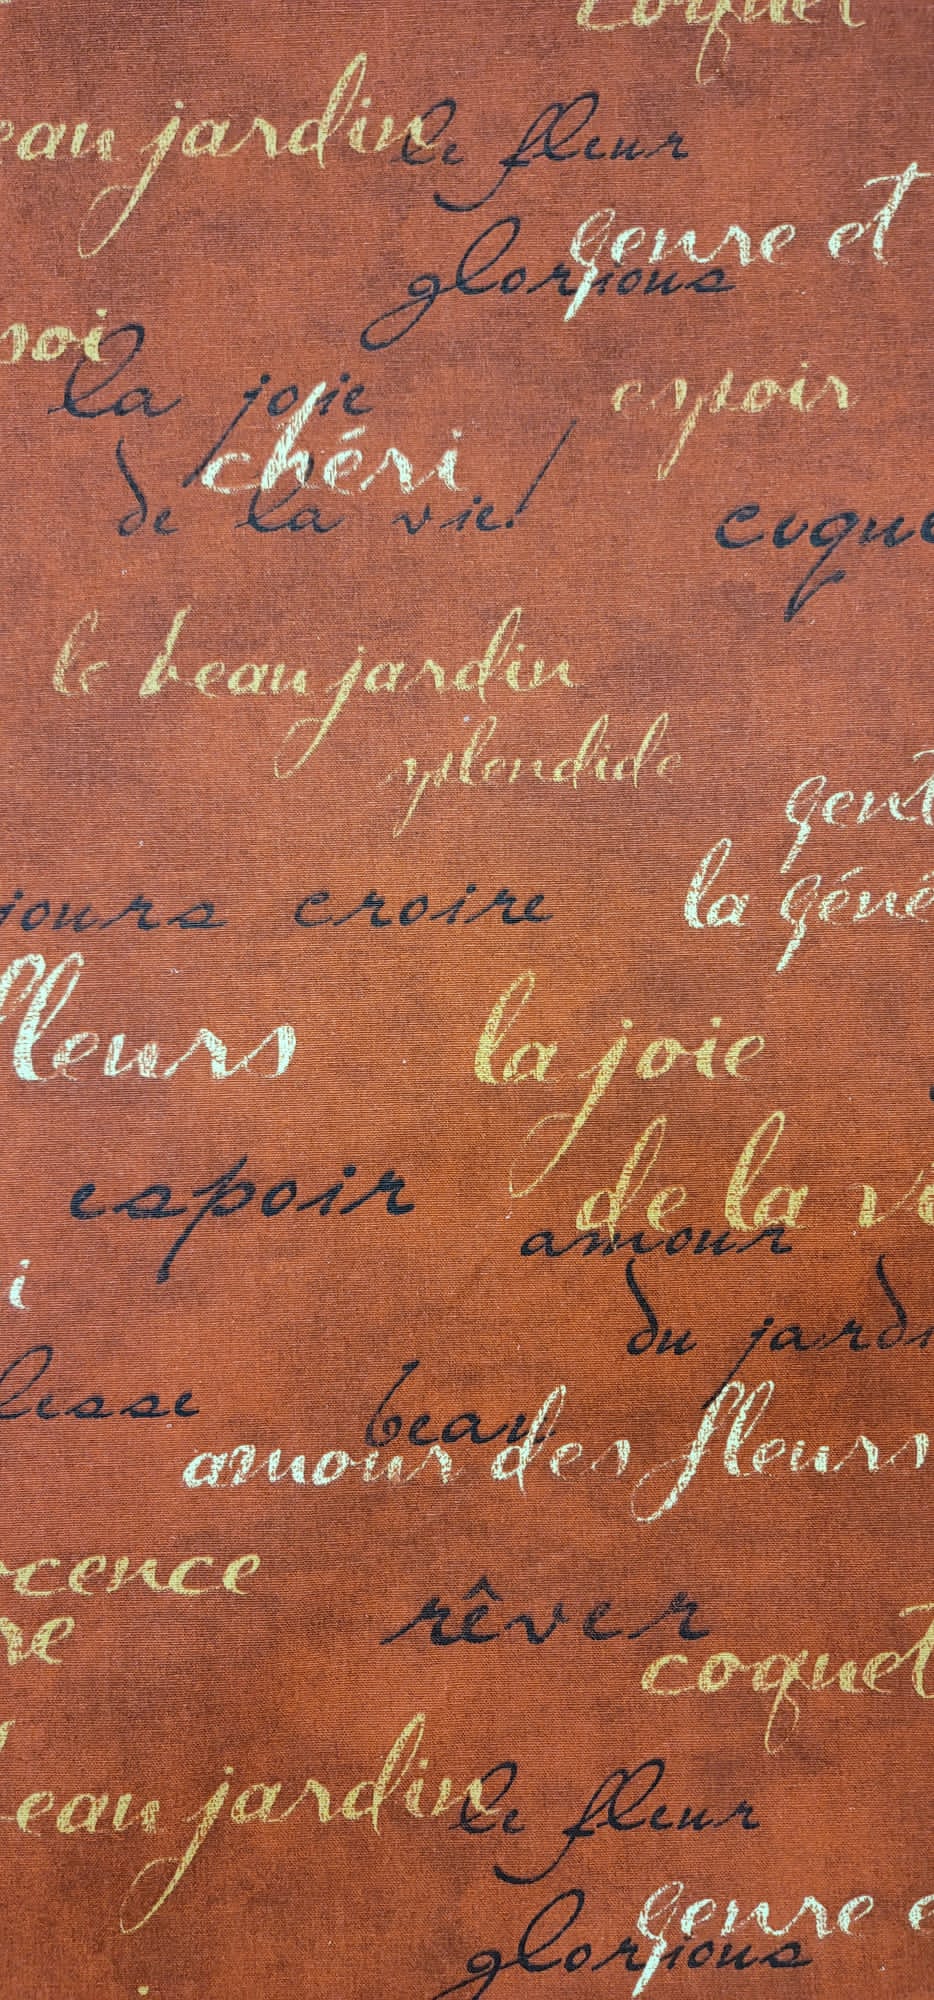 coquet
eau jardin
le fleur
genre et
glorious
soi
la joie
espoir
chéri
de la vie!
coque
le beau jardin
splendide
gent
la géné
jours croire
fleurs
la joie
espoir
de la vi
amour
i
du jardi
lesse
beau
amour des fleurs
ocence
rêver
re
coquet
beau jardin
le fleur
genre e
glorious